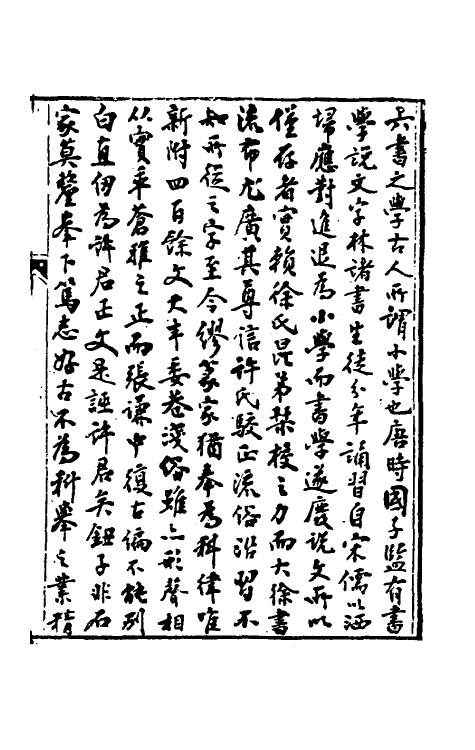 六書之學古人所謂小學也唐時國子監有書
學說文字林諸書生徒分年誦習自宋儒以洒
埽應對進退為小學而書學遂廢說文所以
僅存者實賴徐氏昆弟栞校之力而大徐書
流布尤廣其尊信許氏駁正流俗沿習不
知所從之字至今繆篆家猶奉為科律唯
新附四百餘文大半委巷淺俗雖亦形聲相
从實乖蒼雅之正而張謙中復古編不能別
白直仞為許君正文是誣許君矣鈕子非石
家莫釐峯下篤志好古不為科舉之業精